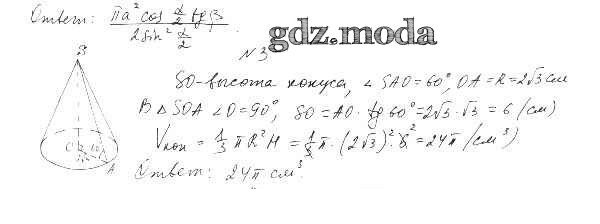 Ответ: πa² cos α/2 tgβ / 2 sin² α/2
gdz.moda
N3
S
SO-высота конуса, ∠SAO=60°, OA=R=2√3 см
В △SOA ∠O=90°, SO=AO·tg 60°=2√3·√3=6 (см)
Vкон = 1/3 πR²H = 1/3 π·(2√3)²·6²=24π (см³)
O
A
Ответ: 24π см³.